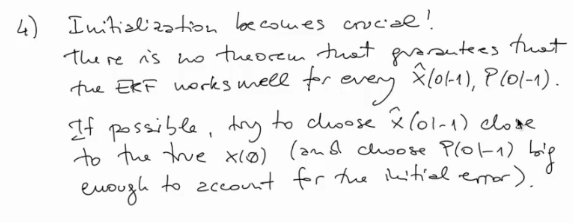 4) Initialization becomes crucial!
There is no theorem that guarantees that
the EKF works well for every x̂(0|-1), P(0|-1).
If possible, try to choose x̂(0|-1) close
to the true x(0) (and choose P(0|-1) big
enough to account for the initial error).